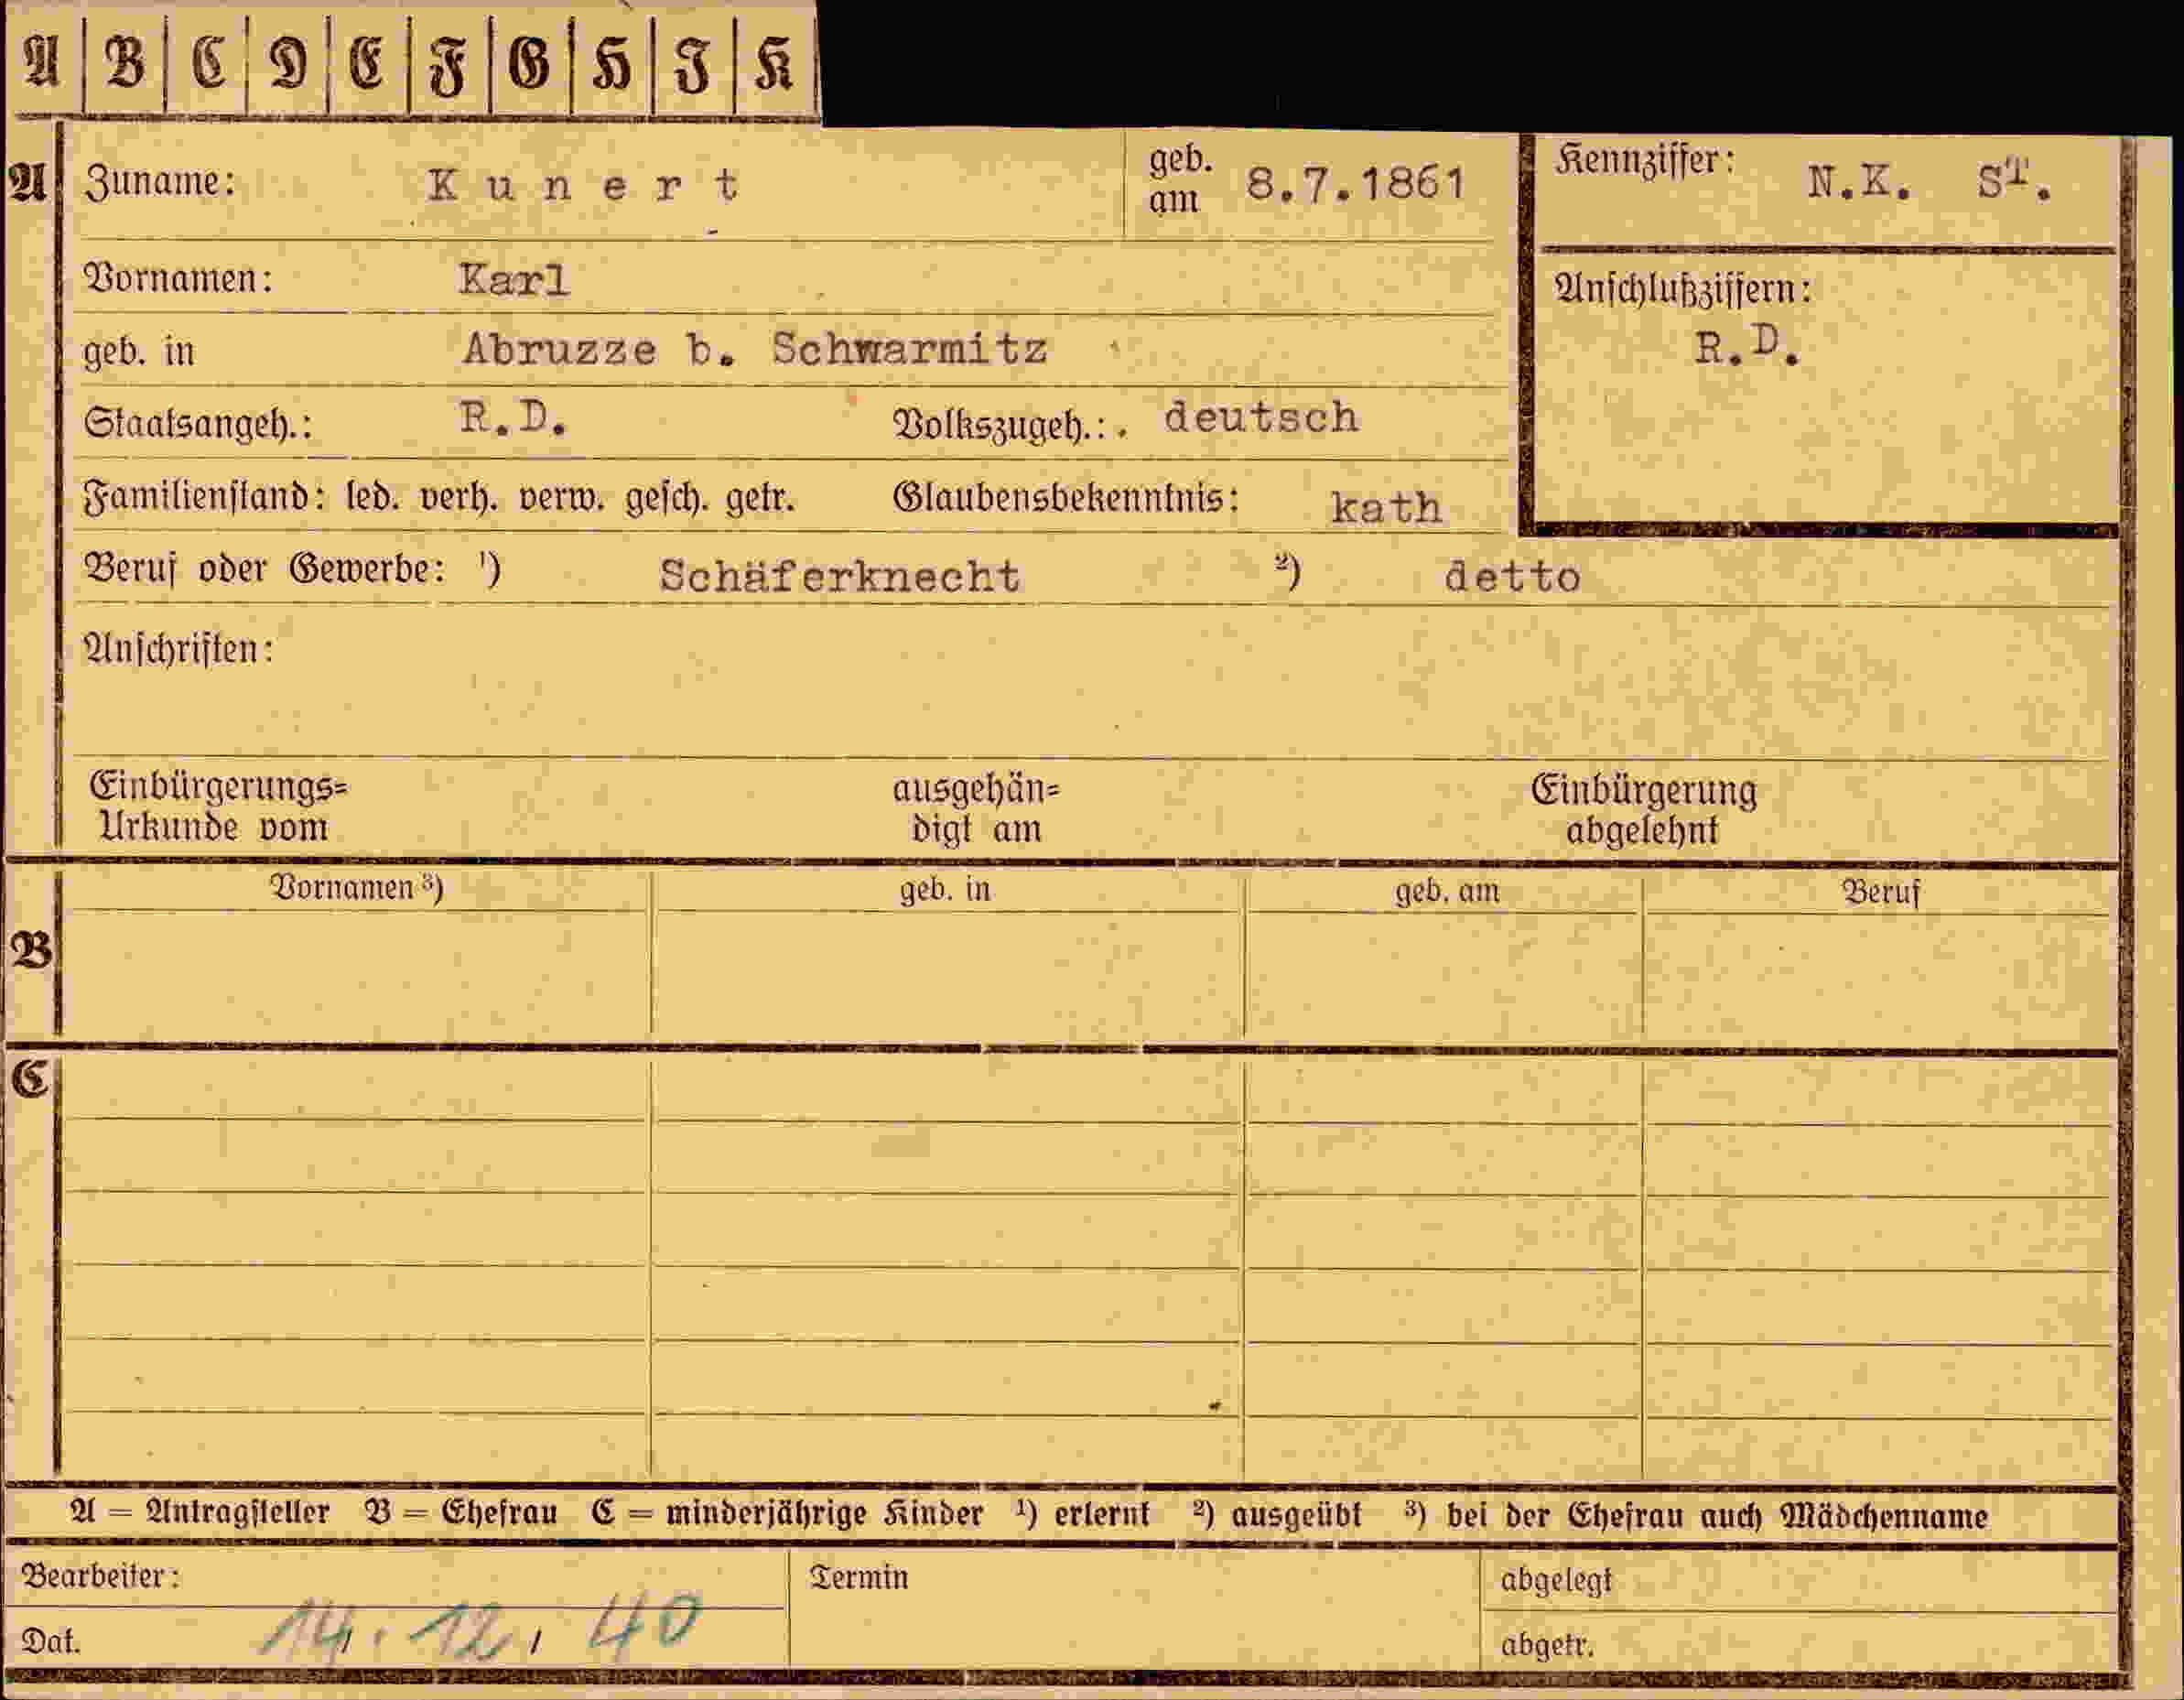 A B C D E F G H J K
A Zuname: Kunert geb. am 8.7.1861 Kennziffer: N.K. ST.
Vornamen: Karl Anschlußziffern:
geb. in Abruzze b. Schwarmitz R.D.
Staatsangeh.: R.D. Volkszugeh.: . deutsch
Familienstand: led. verh. verw. gesch. getr. Glaubensbekenntnis: kath
Beruf oder Gewerbe: ¹) Schäferknecht ²) detto
Anschriften:
Einbürgerungs= ausgehän= Einbürgerung
Urkunde vom digt am abgelehnt
Vornamen ³) geb. in geb. am Beruf
B
C
A = Antragsteller B = Ehefrau C = minderjährige Kinder ¹) erlernt ²) ausgeübt ³) bei der Ehefrau auch Mädchenname
Bearbeiter: Termin abgelegt
Dat. 14. 12. 40 abgetr.